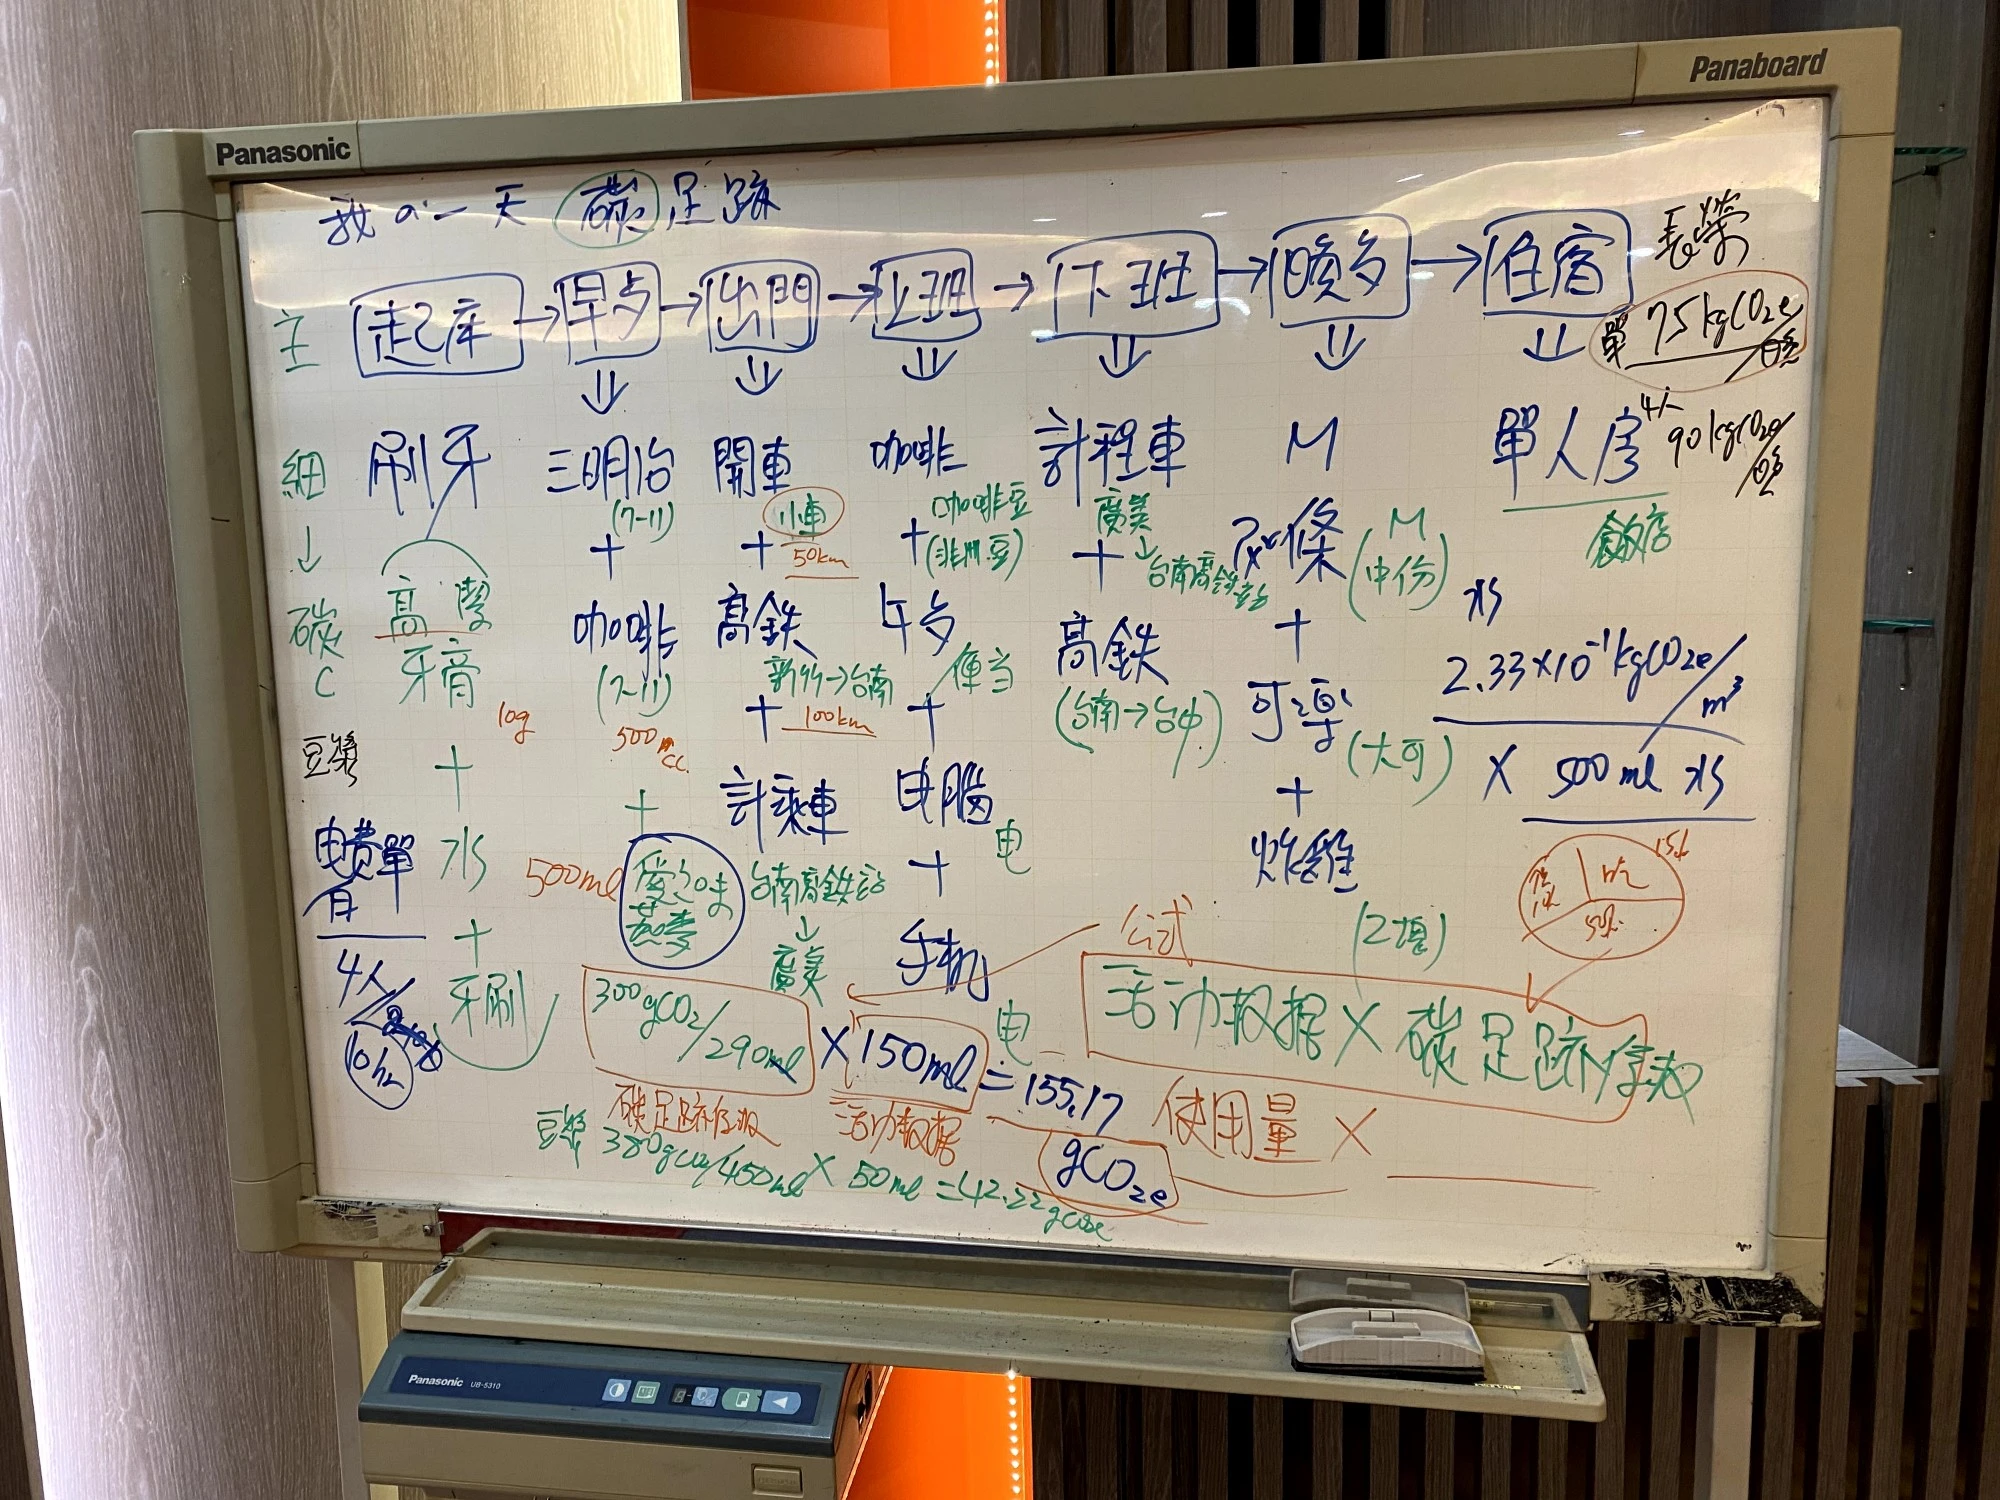 Panasonic
Panaboard
我の一天 碳足跡
主 起床 → 早点 → 出門 → 上班 → 下班 → 晚歺 → 住宿
長榮
單 75kgCO2e/晚
4人 90kgCO2e/晚
細 刷牙 三明治 開車 咖啡 計程車 M 單人房
↓ (7-11) 小車 咖啡豆 廣美 M 飯店
+ + 50km + (非洲豆) + ↓ 台南高鐵站 條 (中份) 水
碳 高露潔 咖啡 高鉄 午歺 高鉄 +
C 牙膏 (7-11) 新竹→台南 便当 (台南→台中) 可樂 2.33×10⁻¹kgCO2e/m³
10g 500 cc. + 100km + (大可) × 500ml 水
豆漿 + + 計乘車 电腦 电 +
电費單 水 500ml 愛之味 台南高鉄站 + 炸雞 吃
月 + 燕麥 ↓ 手机 电 (2塊)
4人 牙刷 廣美
公式
活动数据 × 碳足跡係数
300gCO2/290ml × 150ml = 155.17
gCO2e
碳足跡係数 活动数据 使用量 ×
豆漿 380gCO2/450ml × 50ml = 42.22 gCO2e
Panasonic UB-5310